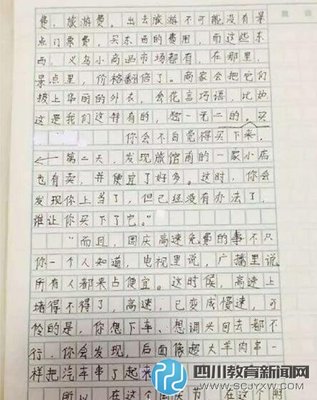 费，旅游费。出去旅游不可能没有景
点门票费，买东西的费用，而这些东
西，义乌小商品市场都有，在那里，
景点里，价格翻倍了。商家会把它们
披上华丽的外衣，会花言巧语，比如
这是我们这特有的，独一无二的。买
你会不自觉得买下来，
第二天，发现旅馆商的一家小店
也有卖，并便宜了好多。这时，你会
发现你上当了，但已经没有办法了，
谁让你买下了它。”
“而且，国庆高速免费的事不只
你一个人知道，电视里说，广播里说
所有人都来占便宜。这时候，高速上
堵得不得了，高速，已变成慢速，可
怜的是，你想下车、想调头回去都不
行，你会发现，后面像趟大羊肉串一
样把汽车串了起来
所以，在这个国庆节，在这个
四川教育新闻网
WWW.SCJYXW.COM